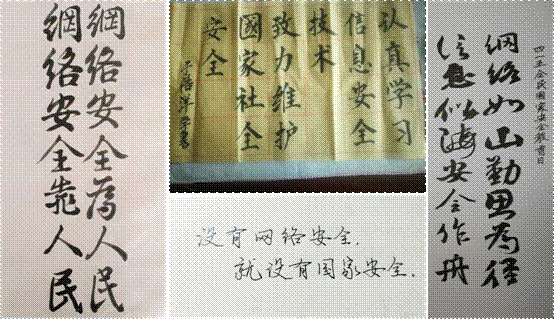 網络安全為人民
網络安全靠人民
认真学习
信息安全
技术
致力维护
國家社全
安全
没有网络安全,
就没有国家安全.
四一五全民國家安全教育日
網络如山勤思為径
信息似海安全作舟